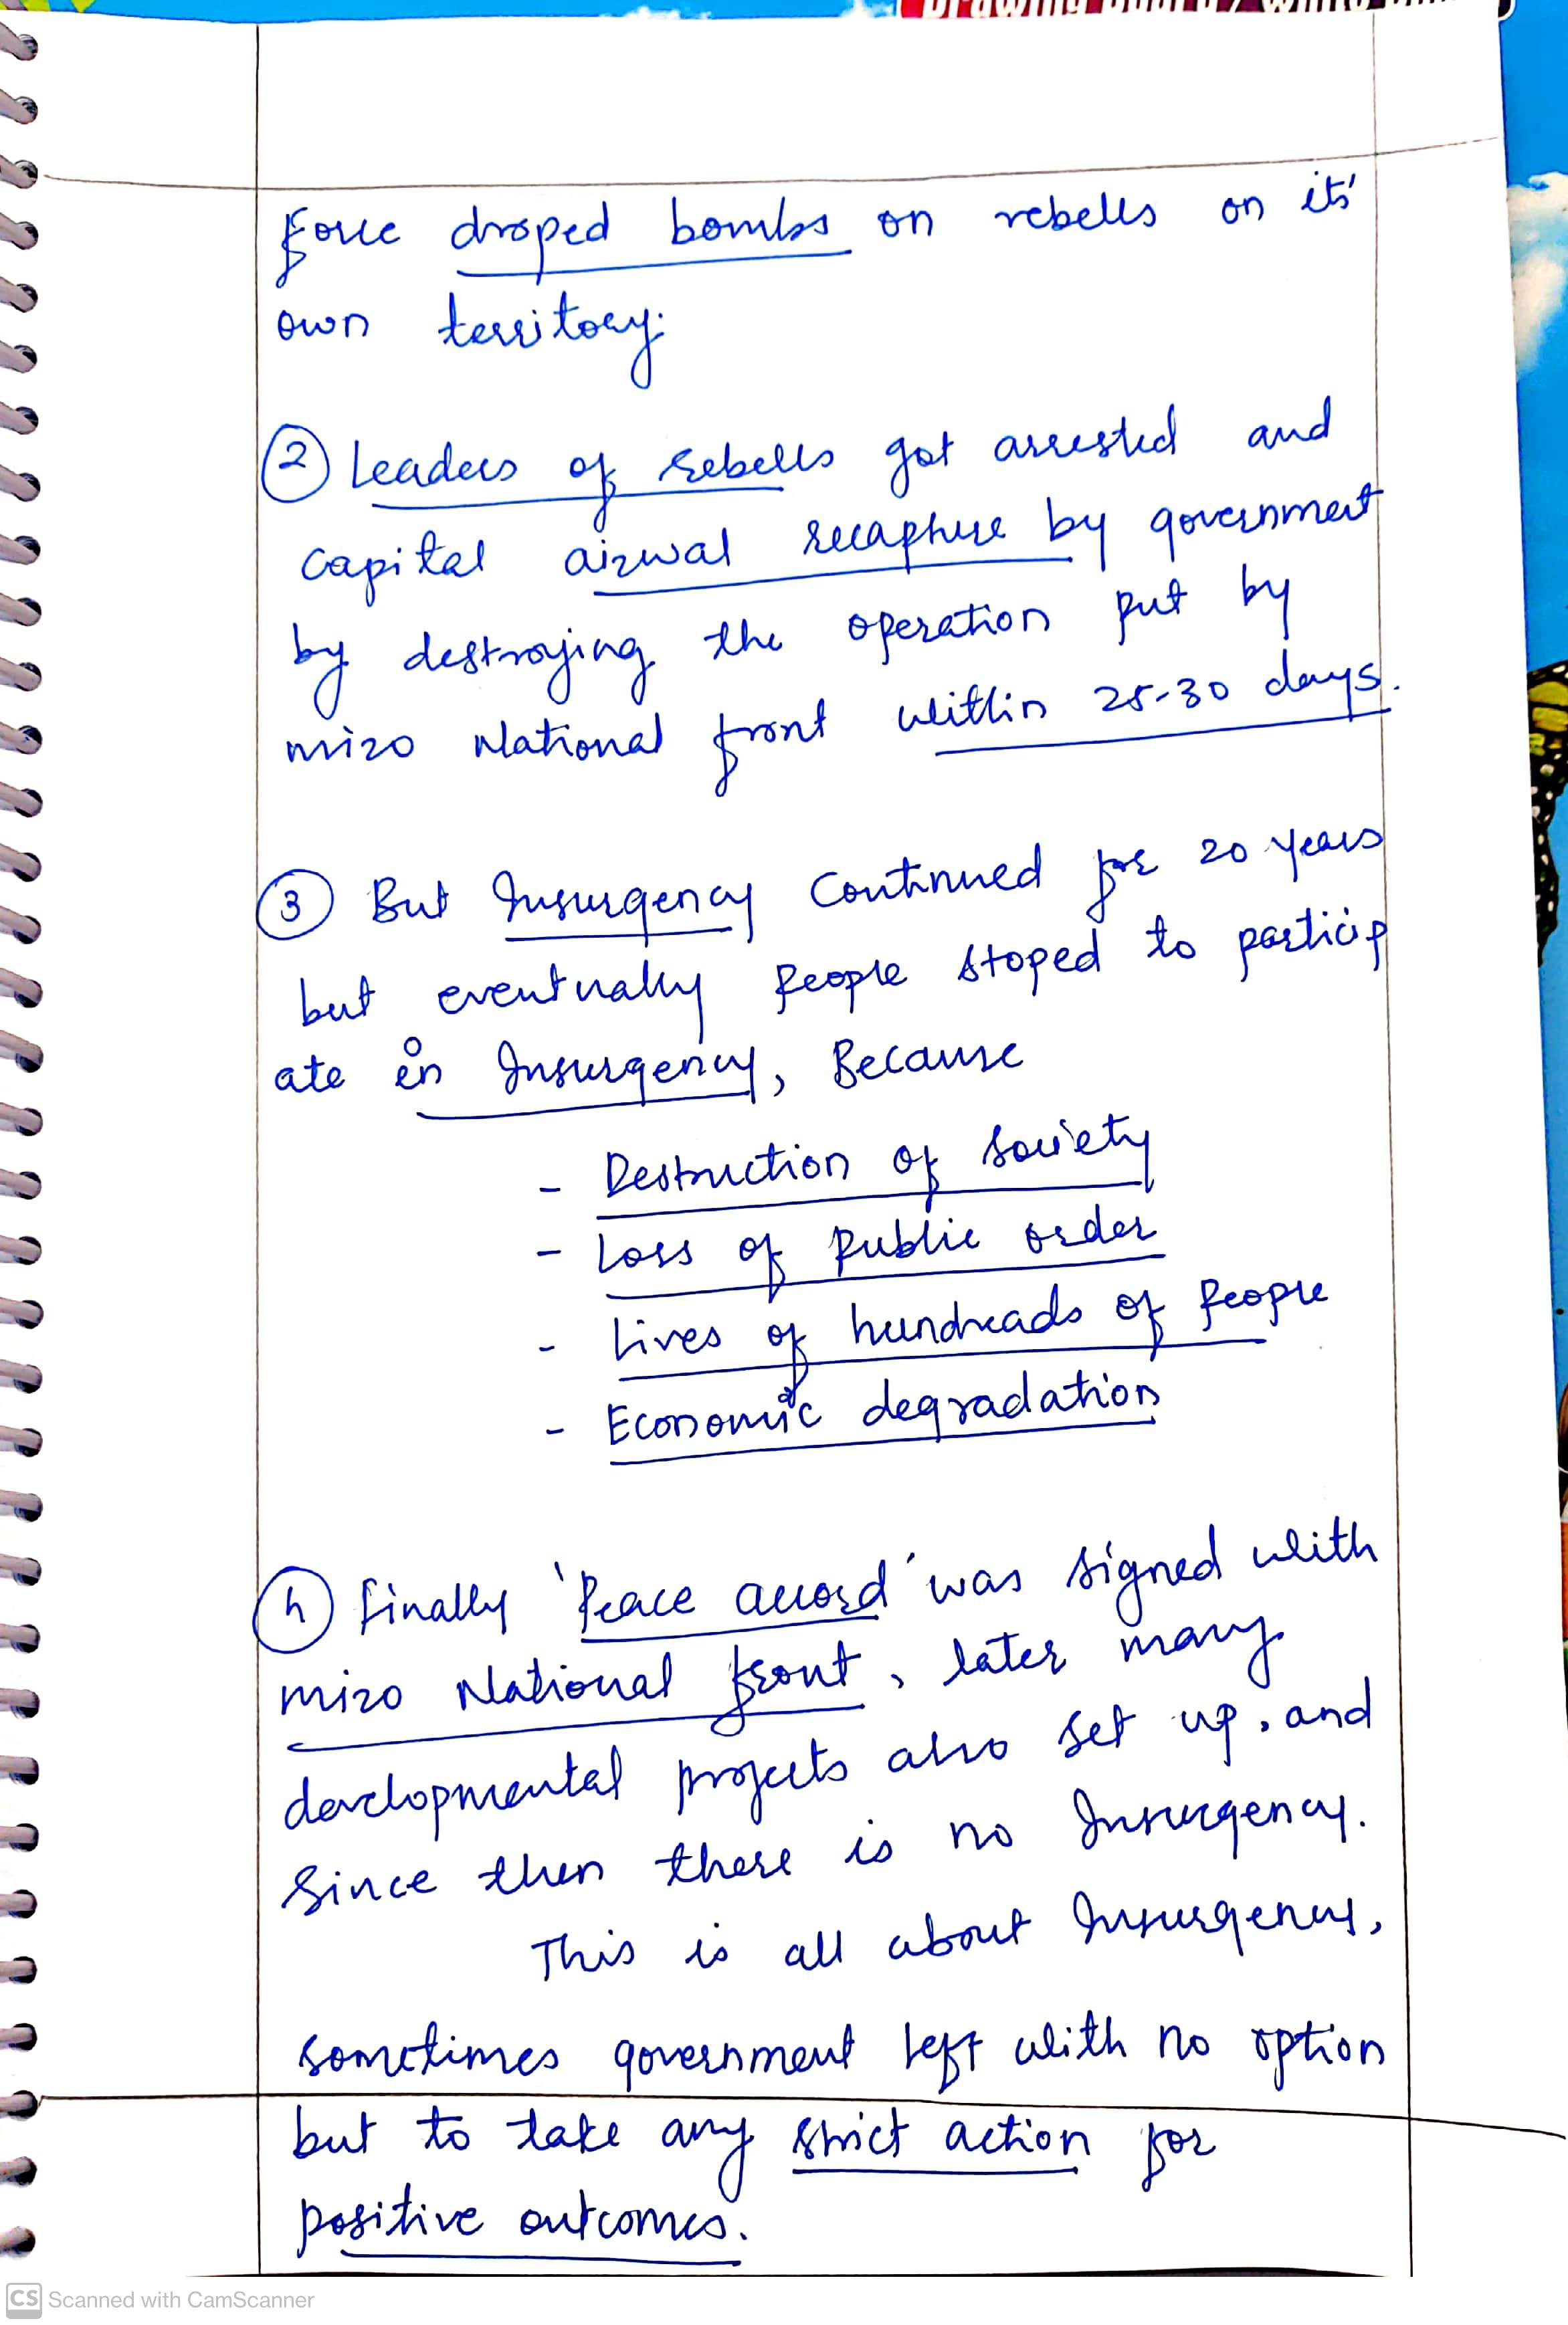 force droped bombs on rebells on its'
own territory.
② Leaders of rebells got arrested and
capital aizwal recapture by government
by destroying the operation put by
mizo National front within 25-30 days.
③ But Insurgency continued for 20 years
but eventually people stoped to particip
ate in Insurgency, Because
- Destruction of society
- Loss of public order
- Lives of hundreads of people
- Economic degradation
④ finally 'Peace accord' was signed with
mizo National front, later many
developmental projects also set up, and
Since then there is no Insurgency.
This is all about Insurgency,
sometimes government left with no option
but to take any strict action for
positive outcomes.
CS Scanned with CamScanner